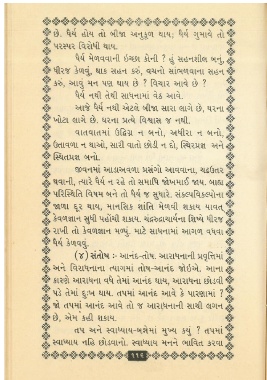 છે. ધૈર્ય હોય તો બીજા અનુકૂળ થાય; ધૈર્ય ગુમાવે તો
પરસ્પર વિરોધી થાય.
ધૈર્ય મેળવવાની ઇચ્છા કોની ? હું સહનશીલ બનું,
ધીરજ કેળવું, થાક સહન કરું, વચનો સાંભળવાના સહન
કરું, આવું મન પણ થાય છે ? વિચાર આવે છે ?
ધૈર્ય નથી તેથી સાધનામાં વેઠ આવે.
આજે ધૈર્ય નથી એટલે બીજા સારા લાગે છે, ઘરના
ખોટા લાગે છે. ઘરના પ્રત્યે વિશ્વાસ જ નથી.
વાતવાતમાં ઉદ્વિગ્ન ન બનો, અધીરા ન બનો,
ઉતાવળા ન થાઓ, સારી વાતો છોડી ન દો, સ્થિરપ્રજ્ઞ અને
સ્થિતપ્રજ્ઞ બનો.
જીવનમાં આઘાતવાળા પ્રસંગો આવવાના, ચઢઉતર
થવાની, ત્યારે ધૈર્ય ન રહે તો સમાધિ જોખમાઈ જાય. બાહ્ય
પરિસ્થિતિ વિષમ બને તો ધૈર્ય જ સુધારે. સંકલ્પવિકલ્પોના
જાળા દૂર થાય, માનસિક શાંતિ મેળવી શકાય યાવત્
કેવળજ્ઞાન સુધી પહોંચી શકાય. ચંડરુદ્રાચાર્યના શિષ્યે ધીરજ
રાખી તો કેવળજ્ઞાન મળ્યું. માટે સાધનામાં આગળ વધવા
ધૈર્ય કેળવવું.
(૪) સંતોષ : આનંદ-તોષ. આરાધનાની પ્રવૃત્તિમાં
અને વિરાધનાના ત્યાગમાં તોષ-આનંદ જોઈએ. આના
કારણે આરાધના વધે તેમાં આનંદ થાય, આરાધના છોડવી
પડે તેમાં દુઃખ થાય. તપમાં આનંદ આવે કે પારણામાં ?
જો તપમાં આનંદ આવે તો જ આરાધનાની સાથે લગન
છે, એમ કહી શકાય.
તપ અને સ્વાધ્યાય-બન્નેમાં મુખ્ય કયું ? તપમાં
સ્વાધ્યાય નહિ છોડવાનો. સ્વાધ્યાય મનને ભાવિત કરવા
૧૧૬